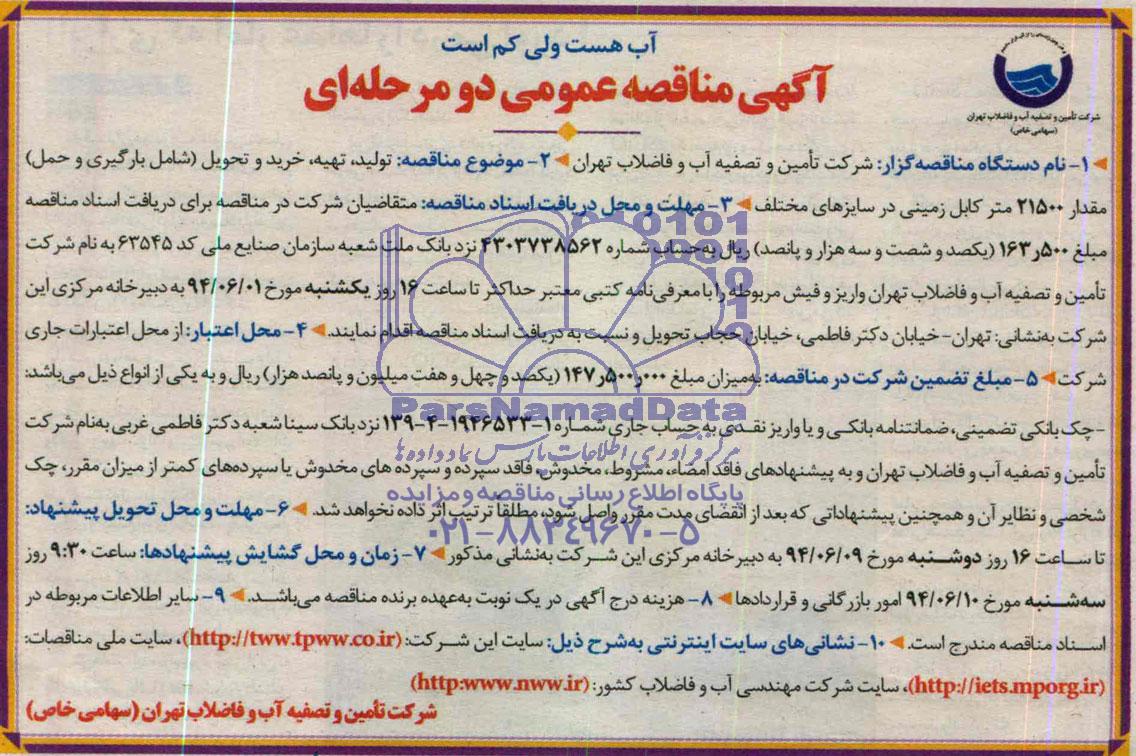 آب هست ولی کم است
آگهی مناقصه عمومی دو مرحله‌ای
شرکت تأمین و تصفیه آب و فاضلاب تهران
(سهامی خاص)
۱- نام دستگاه مناقصه‌گزار: شرکت تأمین و تصفیه آب و فاضلاب تهران ۲- موضوع مناقصه: تولید، تهیه، خرید و تحویل (شامل بارگیری و حمل)
مقدار ۲۱۵۰۰ متر کابل زمینی در سایزهای مختلف ۳- مهلت و محل دریافت اسناد مناقصه: متقاضیان شرکت در مناقصه برای دریافت اسناد مناقصه
مبلغ ۱۶۳٫۵۰۰ (یکصد و شصت و سه هزار و پانصد) ریال به‌حساب شماره ۴۳۰۳۷۳۸۵۶۲ نزد بانک ملت شعبه سازمان صنایع ملی کد ۶۳۵۴۵ به نام شرکت
تأمین و تصفیه آب و فاضلاب تهران واریز و فیش مربوطه را با معرفی‌نامه کتبی معتبر حداکثر تا ساعت ۱۶ روز یکشنبه مورخ ۹۴/۰۶/۰۱ به دبیرخانه مرکزی این
شرکت به‌نشانی: تهران- خیابان دکتر فاطمی، خیابان حجاب تحویل و نسبت به دریافت اسناد مناقصه اقدام نمایند. ۴- محل اعتبار: از محل اعتبارات جاری
شرکت ۵- مبلغ تضمین شرکت در مناقصه: به‌میزان مبلغ ۱۴۷٫۵۰۰٫۰۰۰ (یکصد و چهل و هفت میلیون و پانصد هزار) ریال و به یکی از انواع ذیل می‌باشد:
-چک بانکی تضمینی، ضمانتنامه بانکی و یا واریز نقدی به حساب جاری شماره ۱-۱۹۴۶۵۳۳-۴-۱۳۹ نزد بانک سینا شعبه دکتر فاطمی غربی به‌نام شرکت
تأمین و تصفیه آب و فاضلاب تهران و به پیشنهادهای فاقد امضاء، مشروط، مخدوش، فاقد سپرده و سپرده های مخدوش یا سپرده‌های کمتر از میزان مقرر، چک
شخصی و نظایر آن و همچنین پیشنهاداتی که بعد از انقضای مدت مقرر واصل شود، مطلقاً ترتیب اثر داده نخواهد شد. ۶- مهلت و محل تحویل پیشنهاد:
تا ساعت ۱۶ روز دوشنبه مورخ ۹۴/۰۶/۰۹ به دبیرخانه مرکزی این شرکت به‌نشانی مذکور ۷- زمان و محل گشایش پیشنهادها: ساعت ۹:۳۰ روز
سه‌شنبه مورخ ۹۴/۰۶/۱۰ امور بازرگانی و قراردادها ۸- هزینه درج آگهی در یک نوبت به‌عهده برنده مناقصه می‌باشد. ۹- سایر اطلاعات مربوطه در
اسناد مناقصه مندرج است. ۱۰- نشانی‌های سایت اینترنتی به‌شرح ذیل: سایت این شرکت: (http://tww.tpww.co.ir)، سایت ملی مناقصات:
(http://iets.mporg.ir)، سایت شرکت مهندسی آب و فاضلاب کشور: (http:www.nww.ir)
شرکت تأمین و تصفیه آب و فاضلاب تهران (سهامی خاص)
ParsNamadData
مرکز فرآوری اطلاعات پارس نماد داده‌ها
پایگاه اطلاع رسانی مناقصه و مزایده
۰۲۱-۸۸۳۴۹۶۷۰-۵